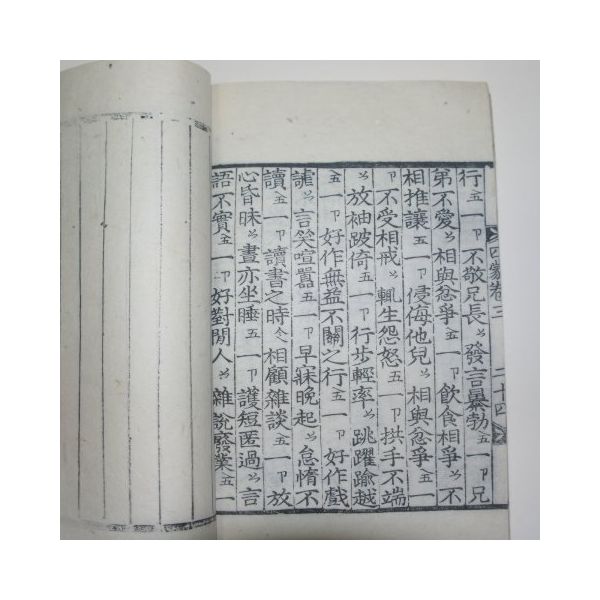 四蒙卷三 二十四
行五一卩不敬兄長ソ發言暴勃五一卩兄
弟不愛ソ相與忿爭五一卩飮食相爭ソ不
相推讓五一卩侵侮他兒ソ相與忿爭五一
卩不受相戒ソ輒生怨怒五一卩拱手不端
ソ放袖跛倚五一卩行步輕率ソ跳躍踰越
五一卩好作無益不關之行五一卩好作戱
謔ソ言笑喧囂五一卩早寐晚起ソ怠惰不
讀五一卩讀書之時 相顧雜談五一卩放
心昏昧ソ晝亦坐睡五一卩護短匿過ソ言
語不實五一卩好對閒人ソ雜說廢業五一